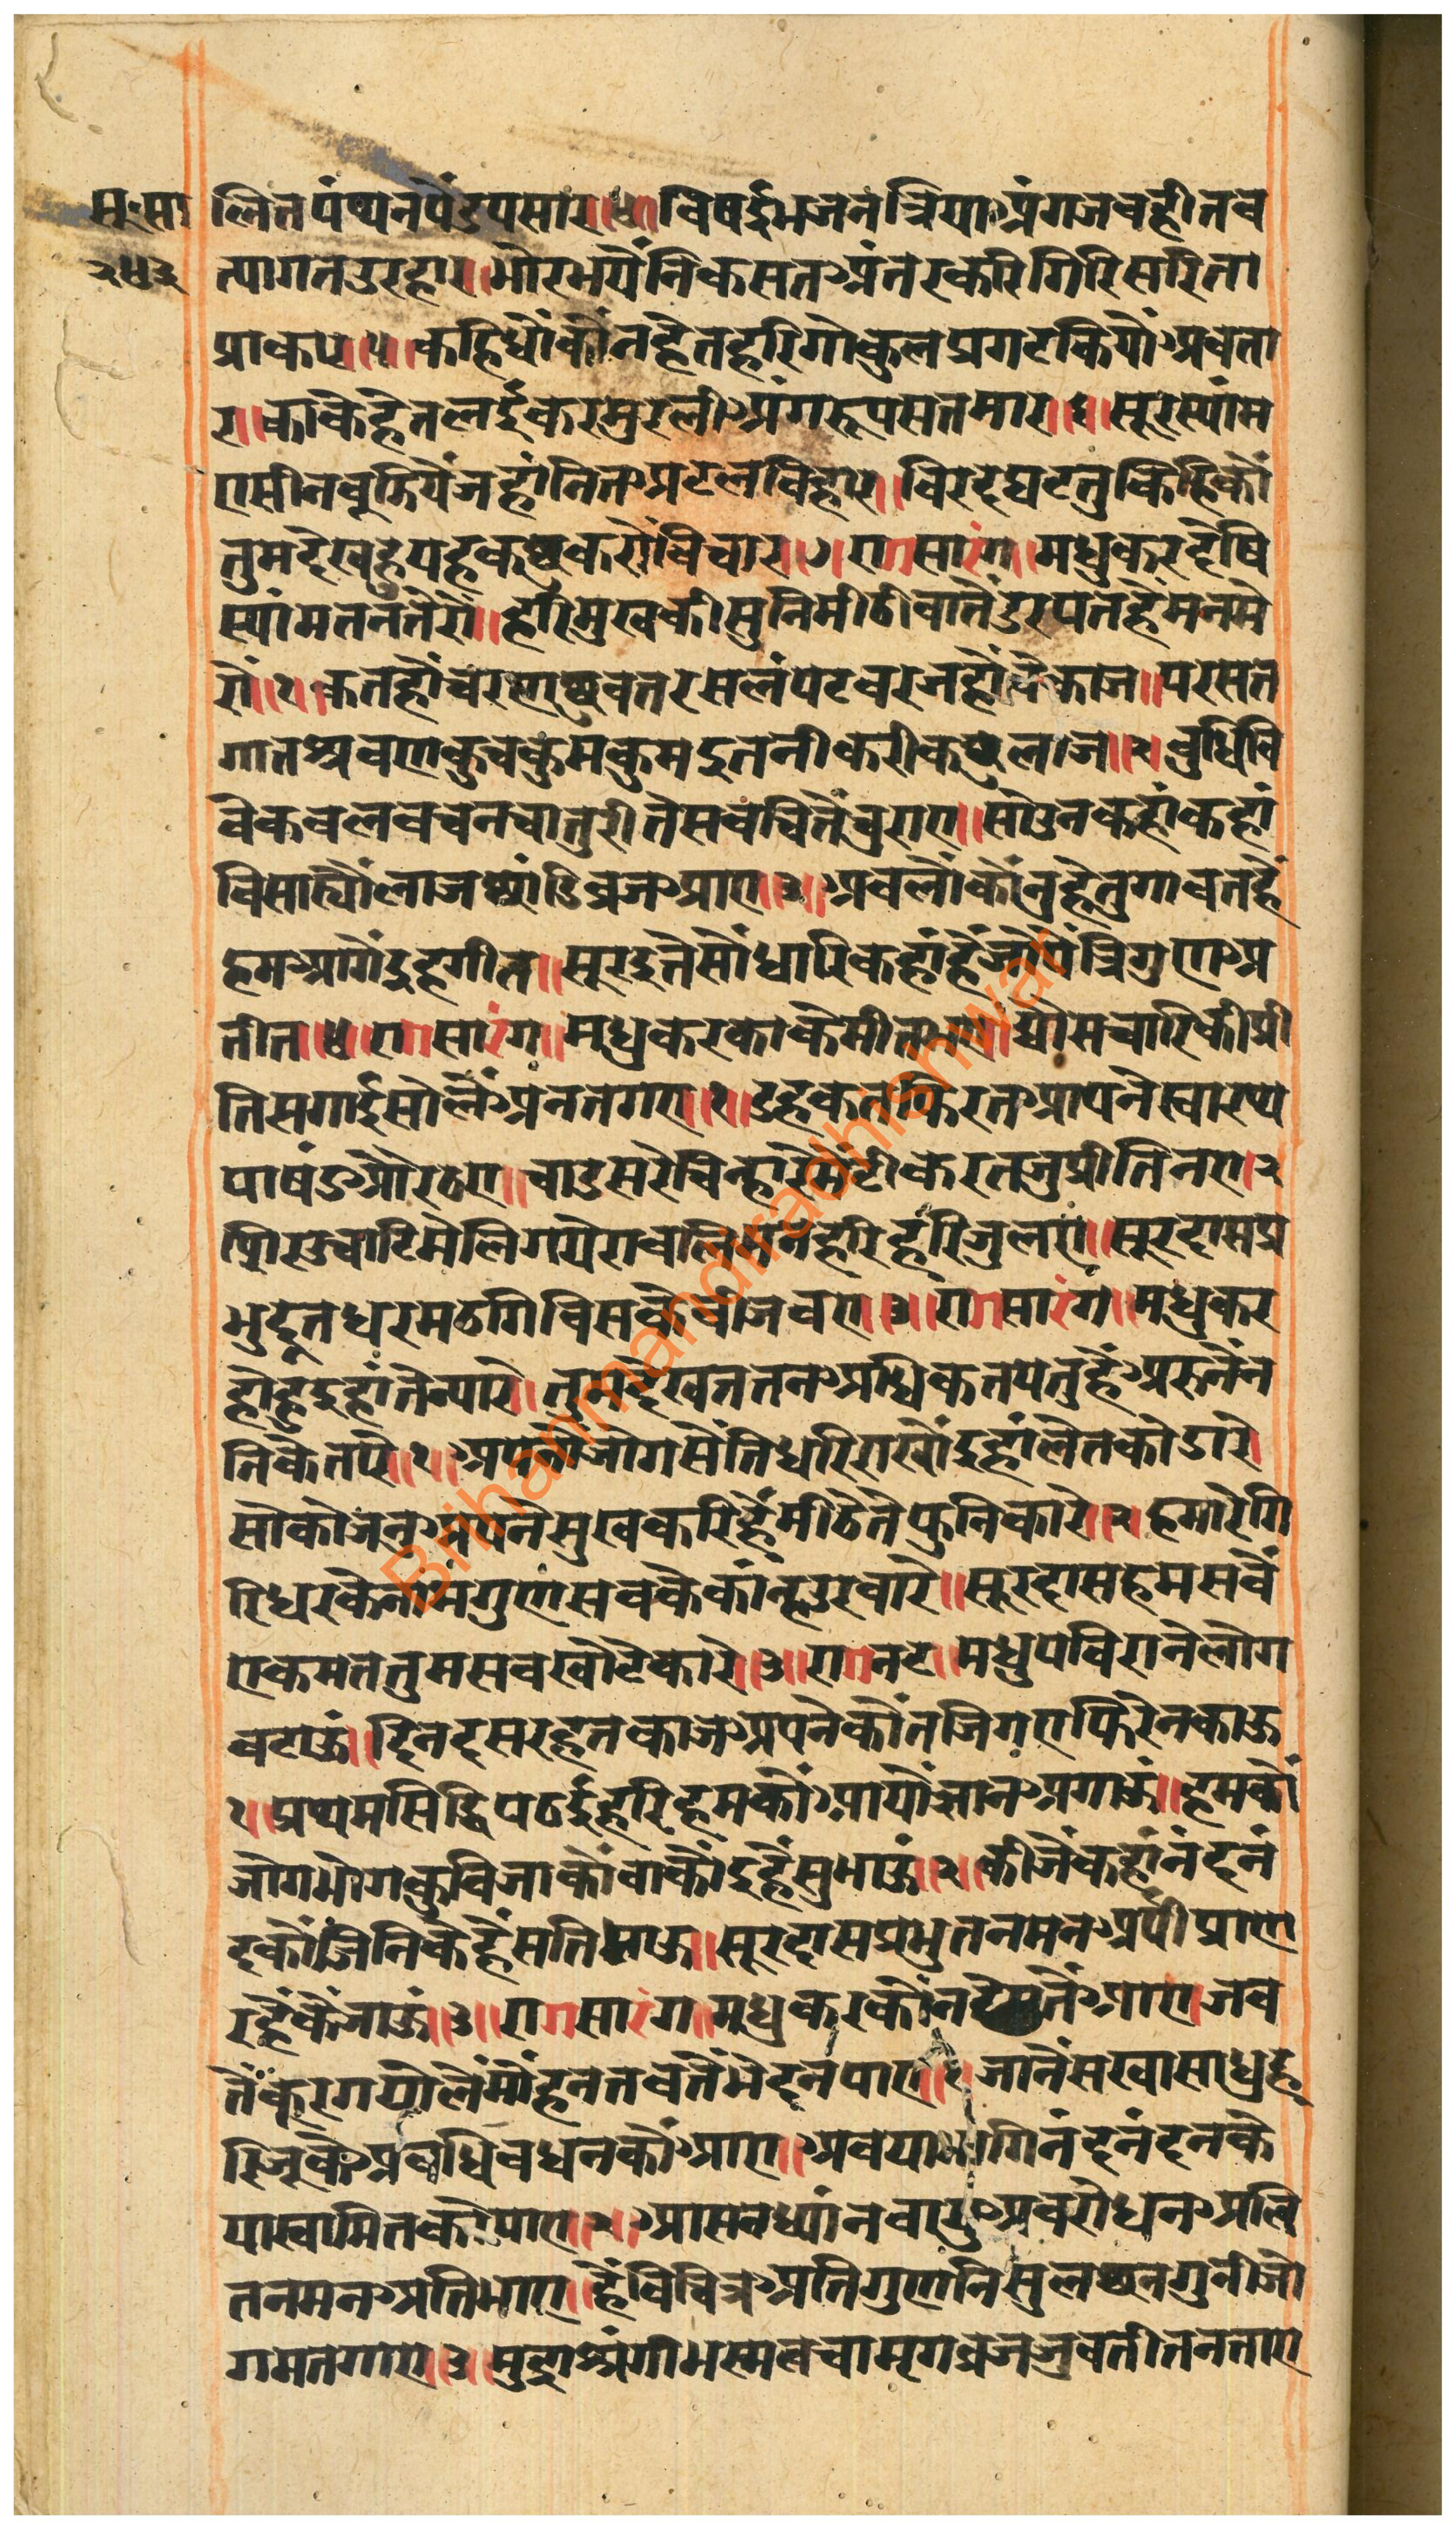 सू॰सा
२५३
लितपंथ्यनपैंडपसार॥४॥विषर्द्दभजनंत्रियाअंगजवहीतव
त्पागतउरहार॥भोरभयैंनिकसतअंतरकरिगिरिसरिता
प्राकार॥५॥कहिधौंकौंनहेतहरिगोकुलप्रगटकियौंअवता
र॥काकेहेतलईकरमुरलीअंगरूपसतमार॥६॥सूरस्यांम
एसीनबूझियैंजहांनितअटलविहार॥विरदघटतुकिहिकौं
तुमदेखहुयहकछुकरौंविचार॥७॥रागसारंग॥मधुकरदेषि
स्यांमतनतेरौं॥हरिमुखकीसुनिमीठीवातेंडरपतहैंमनमे
रौं॥१॥कतहौंचरणछुवतरसलंपटवरजहौंवेकाज॥परसत
गातश्रवणकुचकुमकुमइतनीकरीकछुलाज॥२॥बुधिवि
वेकवलवचनचातुरीतेसबचितैंचुराए॥सोउनकहांकहां
विसार्यौंलाजछांडिव्रजआए॥३॥अवलौंकौंनुहेतुगावतहैं
हमआगेंइहगीत॥सूरइतेसौंधारिकहांहैंजोपेंत्रिगुणअ
तीत॥४॥रागसारंग॥मधुकरकाकेमीतभए॥द्यौसचारिकीप्री
तिसगाईसोलैंअनतगए॥१॥डहकतफिरतआपनेस्वारथ्य
पाषंडऔरठए॥चाडसरेंचिन्हारीमेंटीकरतजुप्रीतिनए॥२
चितउचाटिमेलिगयेरावलिमनहरिहरिजुलए॥सूरदासप्र
भुदूतधरमठगिविसकेवीजवए॥३॥रागसारंग॥मधुकर
होहुइहांतेन्यारे॥तुमदेखततनअधिकतपेतुहैंअरुनैंन
निकेतारे॥१॥अपनौंजोगसैंतिधरिराखौंइहांलेतकोडारे
सोकोजनअपनेसुखकरिहैंमीठेतेफुनिकारे॥२॥हमारेगि
रिधरकेनांमगुणसवकेकांन्हउरवारे॥सूरदासहमसवैं
एकमततुमसवखोटेकारे॥३॥रागनट॥मधुपविरानेलोग
वटाऊं॥दिनदसरहतकाजअपनेकौंतजिगएफिरेनकाऊ
१॥प्रथ्यमसिद्धिपठईहरिहमकौंआयौंज्ञानअगाऊं॥हमकौं
जोगभोगकुविजाकौंवाकौंइहैंसुभाऊं॥२॥कीजेंकहांनंदनं
दकौंजिनिकेहैंसतिभाऊ॥सूरदासप्रभुतनमनअर्पोप्राण
रहैंकैंजाऊं॥३॥रागसारंग॥मधुकरकौंनदेसतेंआए॥जव
तेंकूरगयौलैंमौंहनतवतेंभेदनपाए॥१॥जानेंसखासाधुह
रिजूकेअवधिवधनकौंआए॥अवया गिनंदनंदनके
यास्वामितकोपाए॥२॥आसनध्यांनवायुअवरोधनअलि
तनमनअतिभाए॥हैंविचित्रअतिगुणनिसुलछ्यनगुनीजो
गमतगाए॥३॥मुद्राश्रंगीभस्मत्वचामृगव्रजजुवतीतनताए